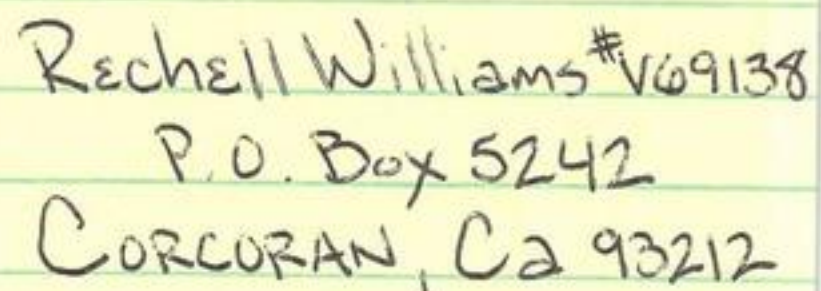 Rechell Williams #V69138
P.O. Box 5242
CORCORAN, Ca 93212